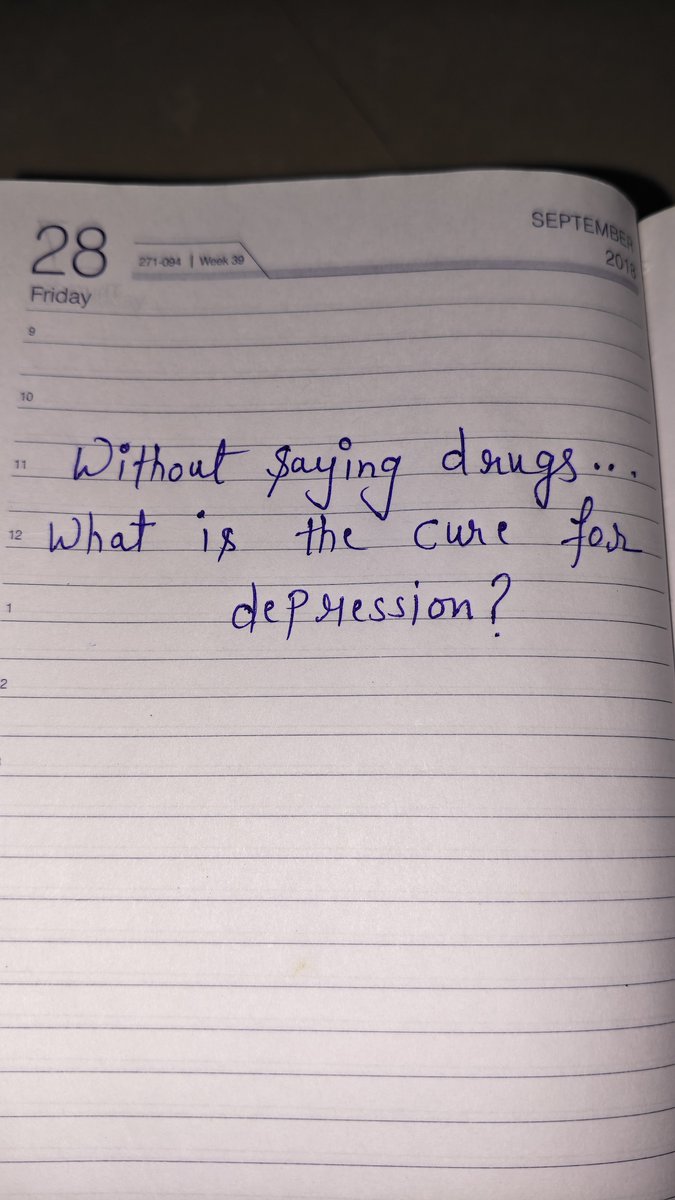 28
Friday
271-094 | Week 39
SEPTEMBER
2018
9
10
11 Without saying drugs...
12 What is the cure for
1 depression?
2